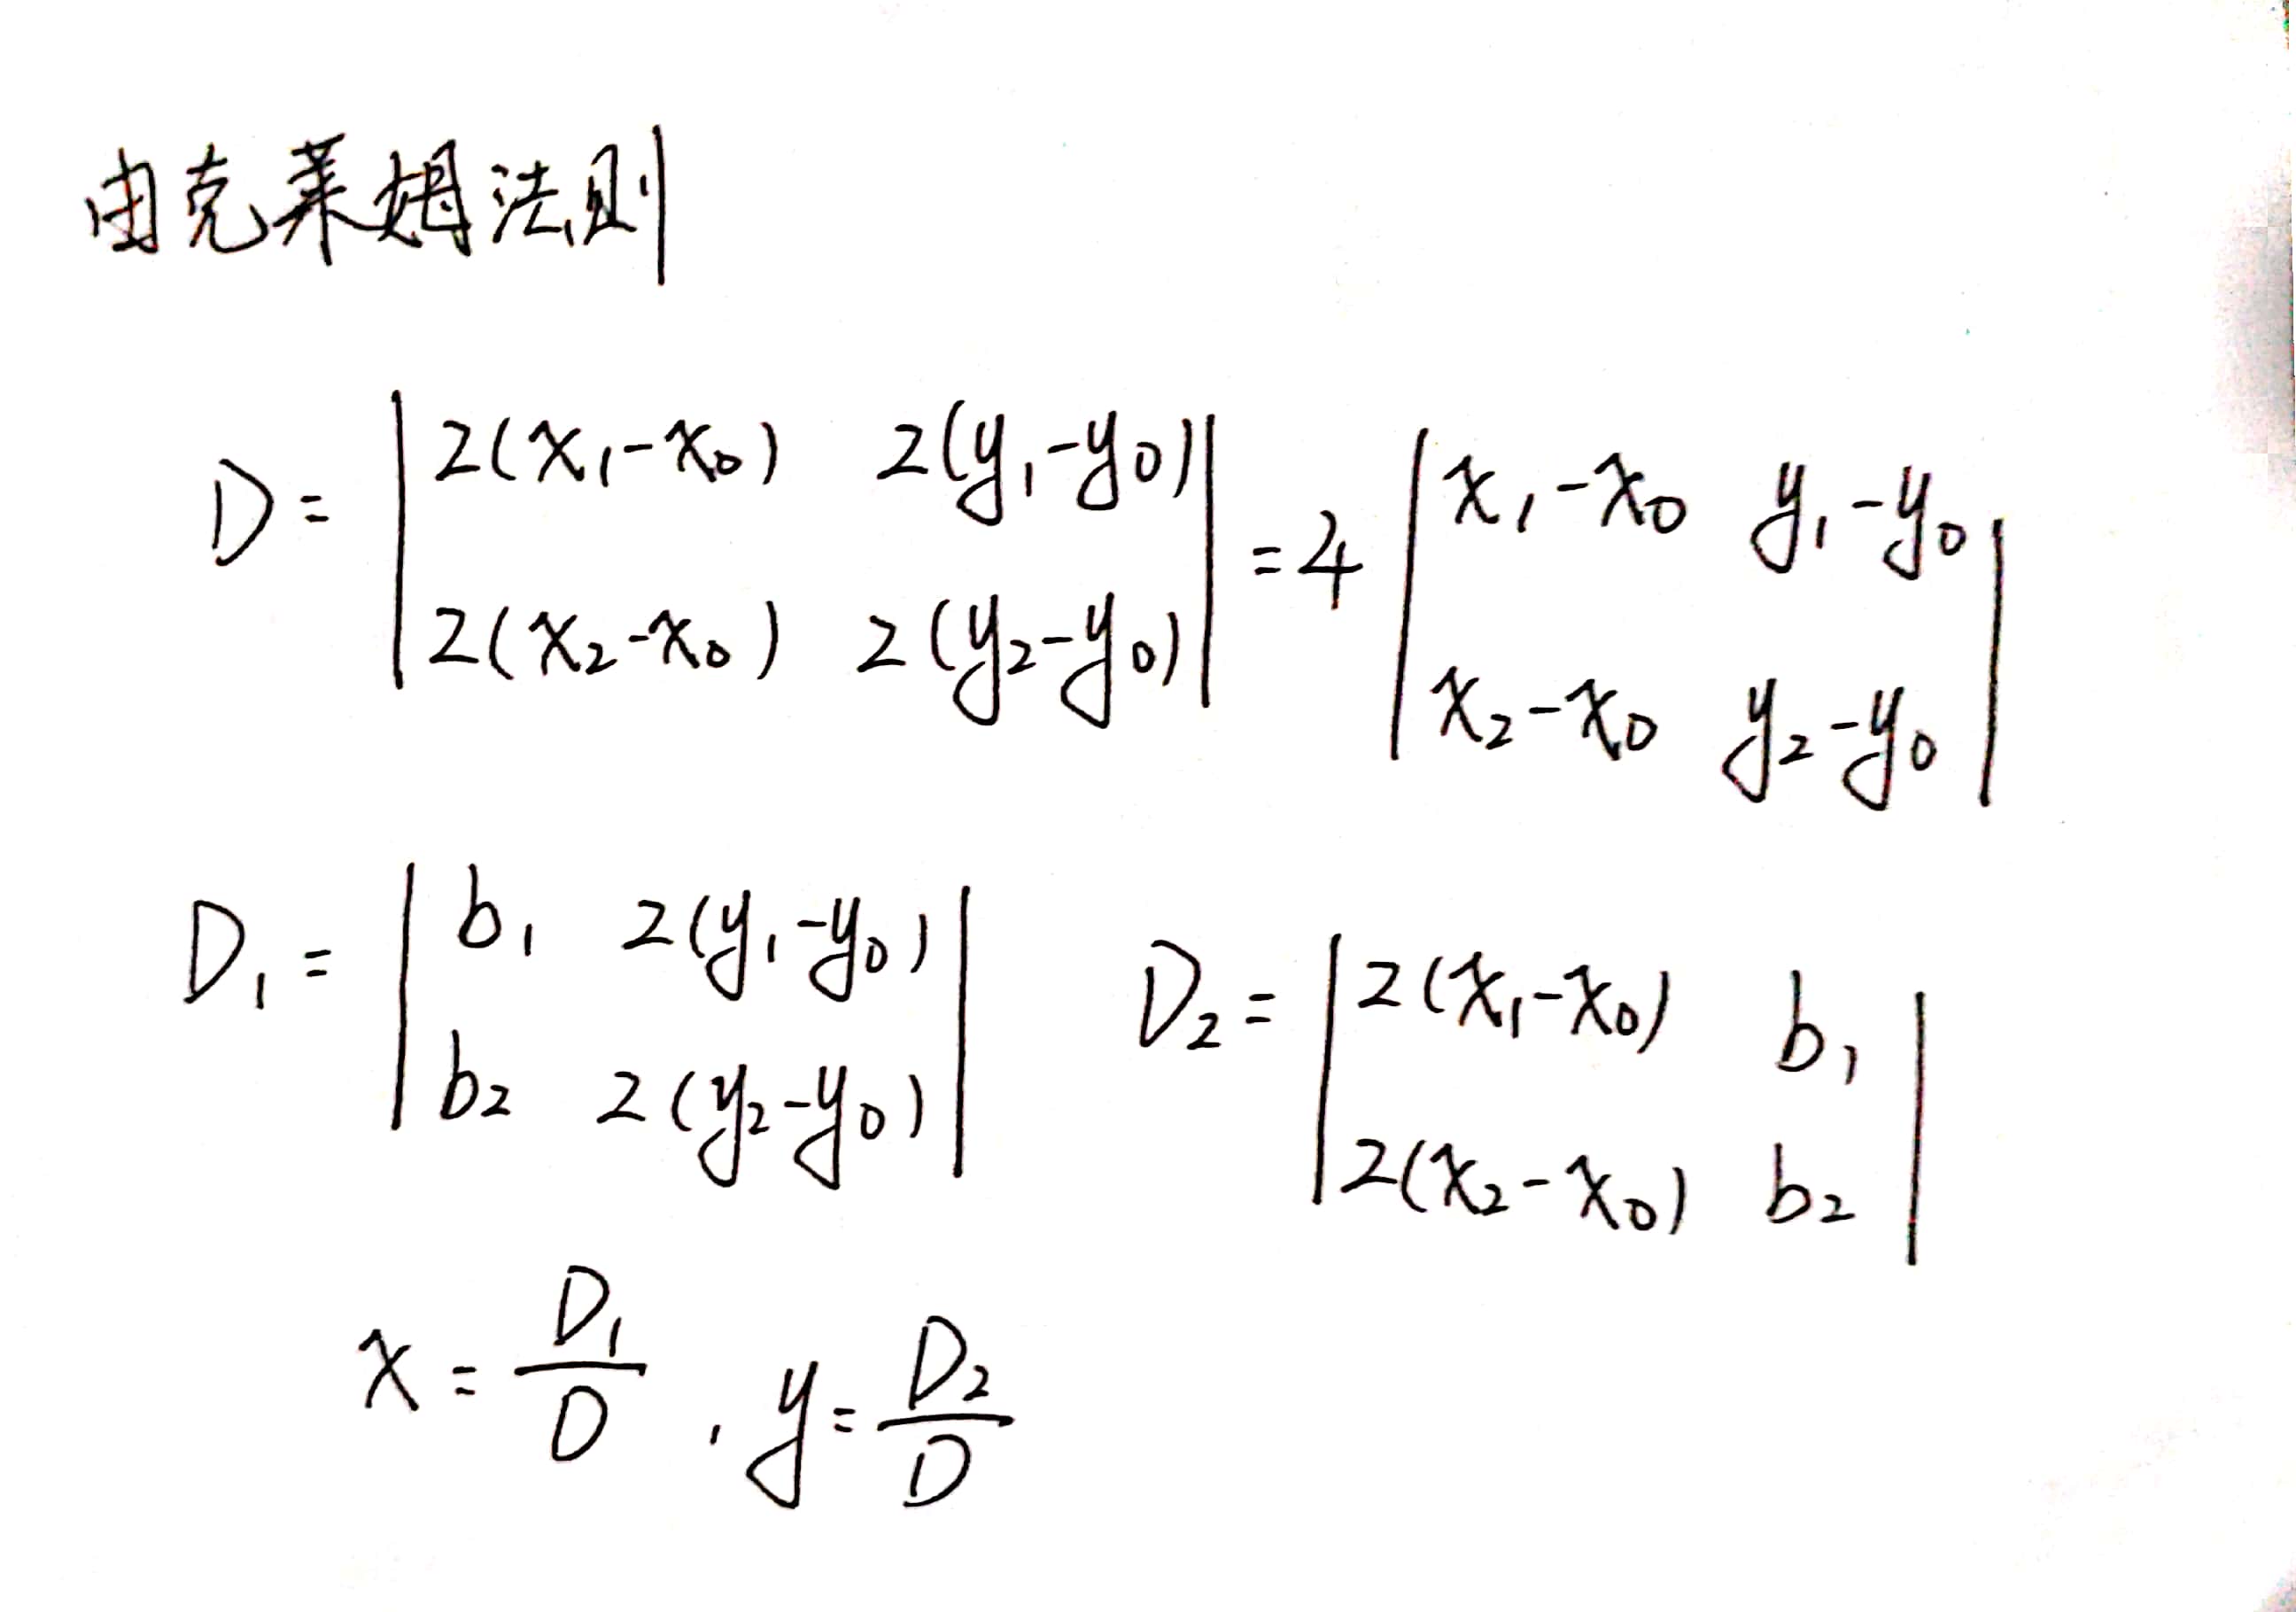 由克莱姆法则
D = | 2(x₁-x₀) 2(y₁-y₀) ; 2(x₂-x₀) 2(y₂-y₀) | = 4 | x₁-x₀ y₁-y₀ ; x₂-x₀ y₂-y₀ |
D₁ = | b₁ 2(y₁-y₀) ; b₂ 2(y₂-y₀) | D₂ = | 2(x₁-x₀) b₁ ; 2(x₂-x₀) b₂ |
x = D₁/D , y = D₂/D